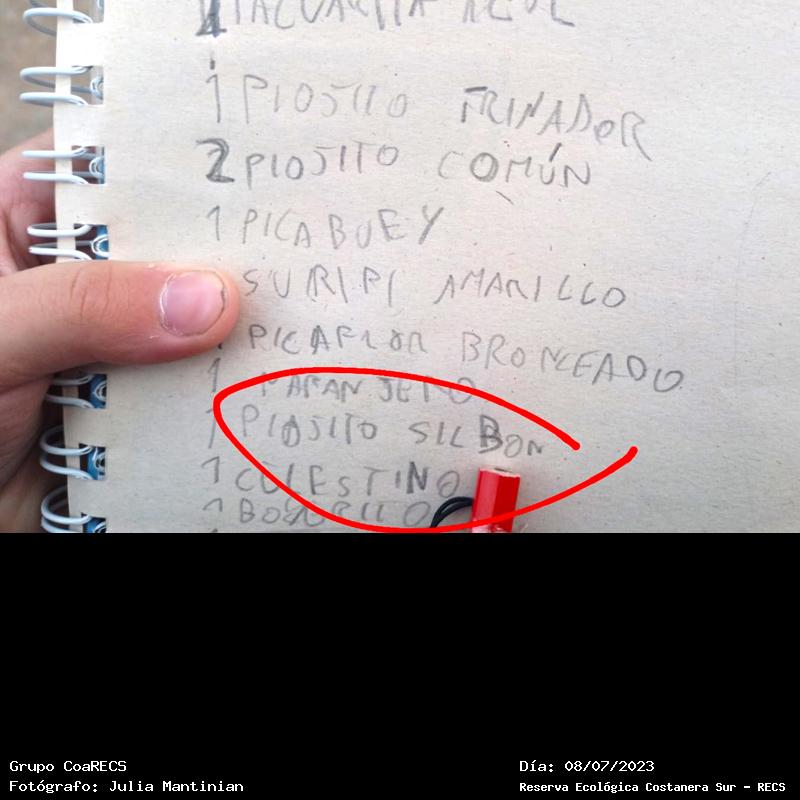 TACUARITA AZUL
1 PIOJITO TRINADOR
2 PIOJITO COMÚN
1 PICABUEY
SURIRI AMARILLO
PICAFLOR BRONCEADO
1 NARANJERO
1 PIOJITO SILBON
1 CELESTINO
1
Grupo CoaRECS
Fotógrafo: Julia Mantinian
Día: 08/07/2023
Reserva Ecológica Costanera Sur - RECS